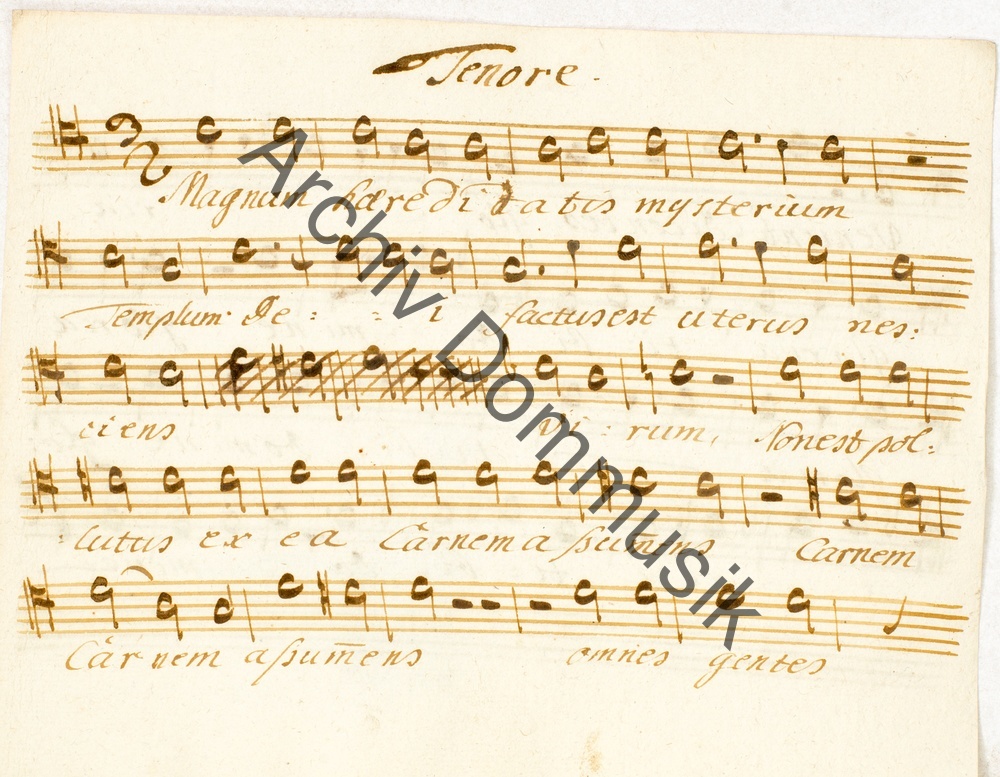 Tenore.
Magnum hæreditatis mysterium
Templum De : : i factus est uterus nes:
ciens Vi : rum, Non est pol:
:lutus ex ea Carnem assum̄ens Carnem
Carnem assum̄ens omnes gentes
Archiv Dommusik